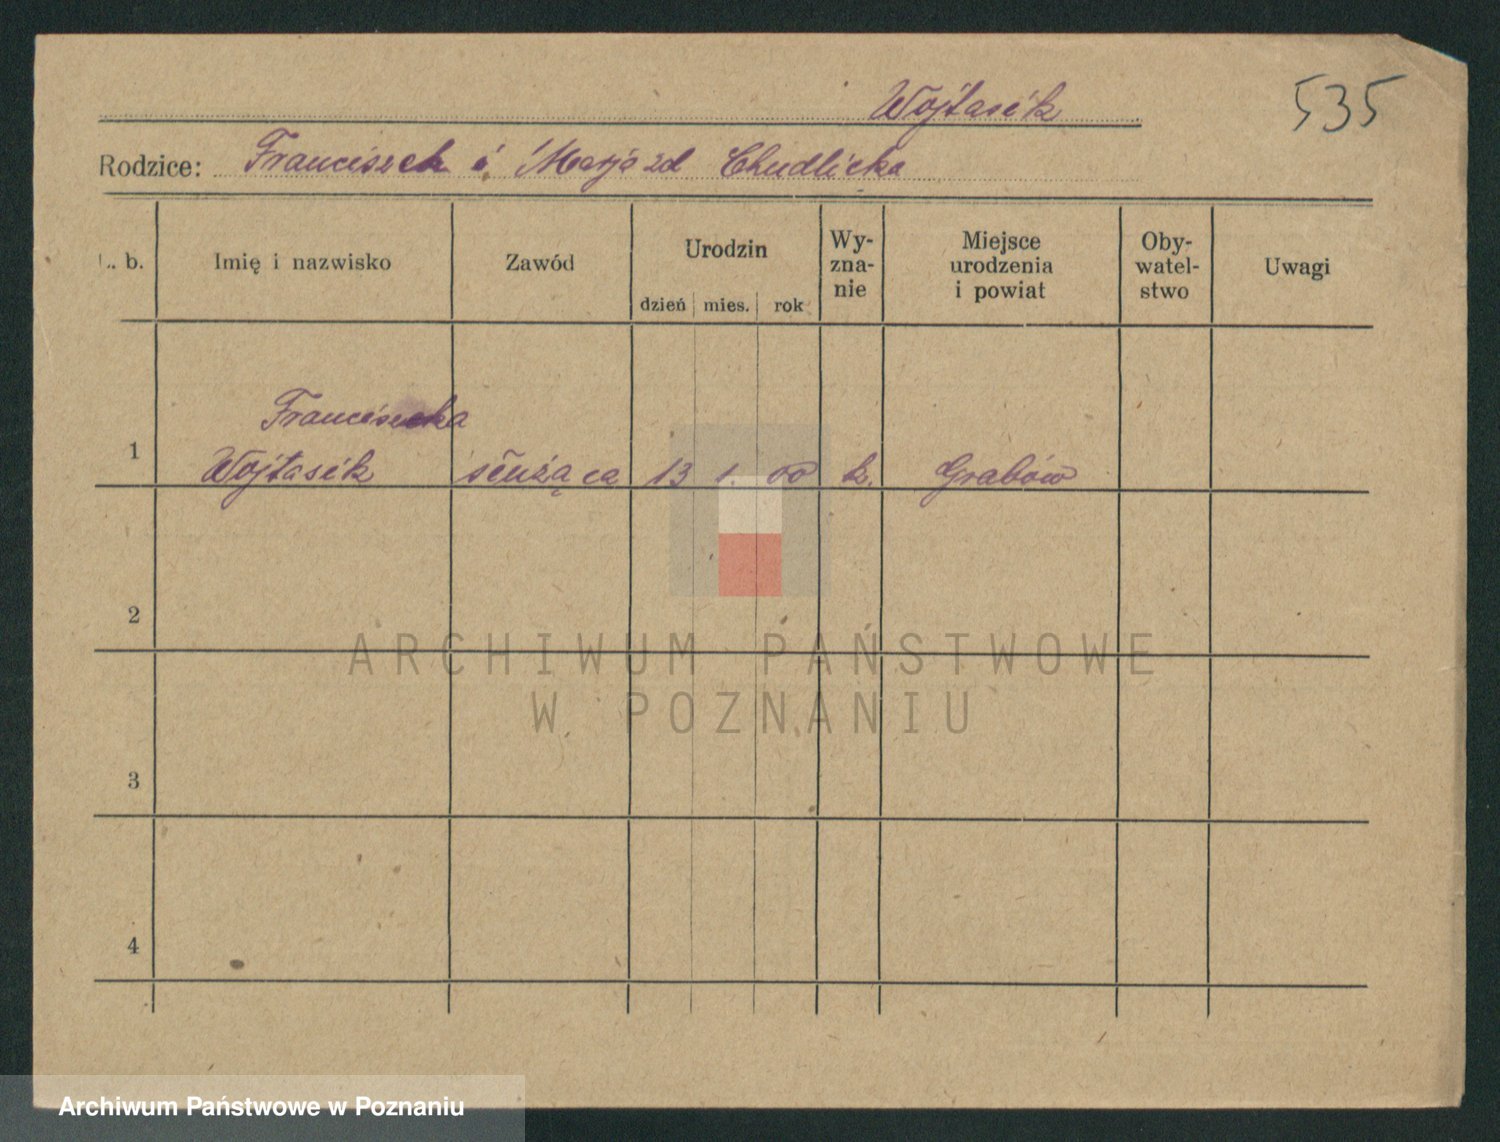 Wojtasik
535
Rodzice: Franciszek i Marja zd Chudlicka
L. b. Imię i nazwisko Zawód Urodzin dzień mies. rok Wy-zna-nie Miejsce urodzenia i powiat Oby-watel-stwo Uwagi
Franciszka
1 Wojtasik służąca 13 1. 00 k. Grabów
2
ARCHIWUM PAŃSTWOWE
W POZNANIU
3
4
Archiwum Państwowe w Poznaniu